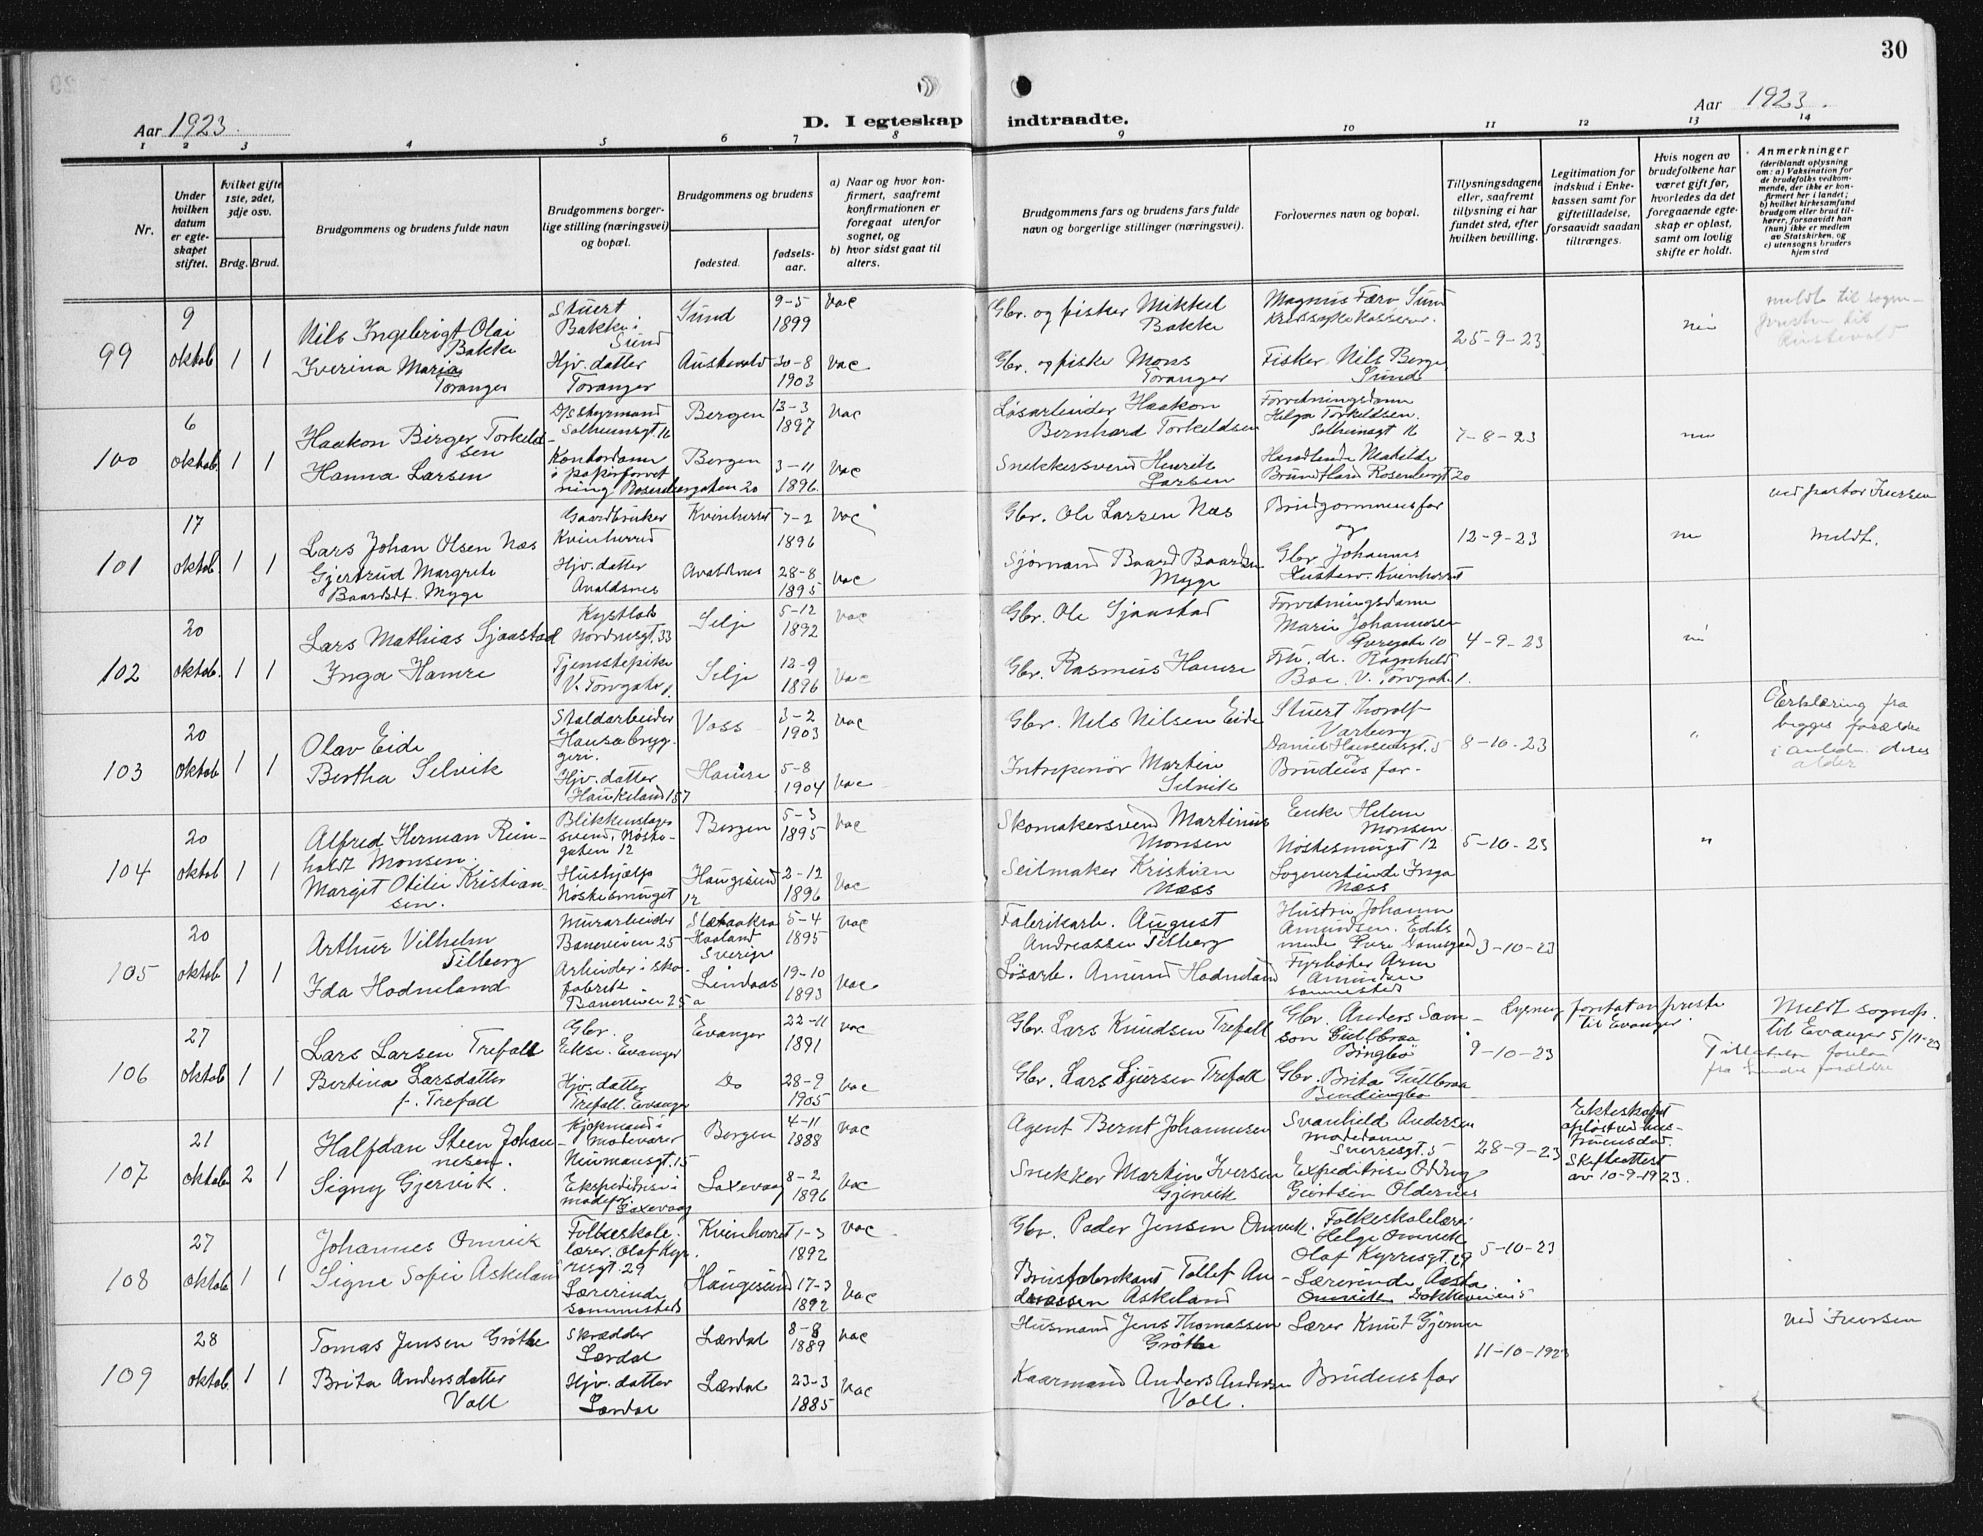 30
Aar 1923.
D. I egteskap indtraadte.
Aar 1923.
1 2 3 4 5 6 7 8 9 10 11 12 13 14
Nr.
Under hvilken datum er egteskapet stiftet.
hvilket gifte 1ste, 2det, 3dje osv.
Brdg. Brud.
Brudgommens og brudens fulde navn
Brudgommens borgerlige stilling (næringsvei) og bopæl.
Brudgommens og brudens
fødested.
fødselsaar.
a) Naar og hvor konfirmert, saafremt konfirmationen er foregaat utenfor sognet, og
b) hvor sidst gaat til alters.
Brudgommens fars og brudens fars fulde navn og borgerlige stillinger (næringsvei).
Forlovernes navn og bopæl.
Tillysningsdagene eller, saafremt tillysning ei har fundet sted, efter hvilken bevilling.
Legitimation for indskud i Enkekassen samt for giftetilladelse, forsaavidt saadan tiltrænges.
Hvis nogen av brudefolkene har været gift før, hvorledes da det foregaaende egteskap er opløst, samt om lovlig skifte er holdt.
Anmerkninger
(deriblandt oplysning om: a) Vaksination for de brudefolks vedkommende, der ikke er konfirmert her i landet; b) hvilket kirkesamfund brudgom eller brud tilhører, forsaavidt han (hun) ikke er medlem av Statskirken, og c) utensogns bruders hjemsted
99 9 oktob 1 1
Nils Ingebrigt Olai Bakke
Stuert Bakke i Sund
Sund 9-5 1899 vac
Gbr. og fisker Mikkel Bakke
Magnus Færø Sund
25-9-23
nei
meldt til sogne-
Iverina Maria Toranger
Hjv. datter Toranger
Austevold 30-8 1903 vac
Gbr. og fisker Mons Toranger
Fisker Nils Berge Sund
100 6 oktob. 1 1
Haakon Birger Torkildsen
D/S styrmand Solheimsgt. 16
Bergen 13-3 1897 vac
Løsarbeider Haakon Bernhard Torkeldsen
Forretningsdame Helga Torkeldsen. Solheimsgt 16
7-8-23
nei
Hanna Larsen
Kontordame i papirforretning Rosenbergaten 20
Bergen 3-11 1896. vac
Snekkersvend Henrik Larsen
Handlende Mathilde Brundtland Rosenbergt 20
101 17 oktob. 1 1
Lars Johan Olsen Næs
Gaardbruker Kvinherred
Kvinherred 7-2 1896 vac
Gbr. Ole Larsen Næs
Brudgommens far og
12-9-23
nei
ved pastor Iversen
Meldt.
Gjertrud Margrete Baardsdt. Myge
Hjv. datter Avaldsnes
Avaldsnes 28-8 1895 vac
Sjømand Baard Baardsen Myge
Gbr Johannes Kvinherred
102 20 oktob. 1 1
Lars Mathias Sjaastad
Nordnesgt. 33
Selje 5-12 1892 vac
Gbr. Ole Sjaastad
Forretningsdame Marie Johannesen 10
4-9-23
nei
Inga Hamre
Tjenestepike V. Torvgate 1.
Selje 12-9 1896 vac
Gbr. Rasmus Hamre
Ragnhild Boe V. Torvgate 1.
103 20 oktob 1 1
Olav Eide
Staldarbeider Hansabryggeri.
Voss 3-2 1903 vac
Gbr. Nils Nilsen Eide
Stuert Thorolf Varberg Daniel Hansensgt. 5
8-10-23
"
Erklæring fra begges forældre i anledn. deres alder
Bertha Selvik
Hjv. datter Haukeland 157
Hamre 5-8 1904 vac
Intrepenør Martin Selvik
Brudens far.
104 20 oktob 1 1
Alfred Herman Reinholdt Monsen.
Blikkenslagersvend. Nøstegaten 12
Bergen 5-3 1895 vac
Skomakersvend Martinius Monsen
Enke Helene Monsen Nøstesmuget 12
5-10-23
"
Margit Otilie Kristiansen.
Hushjelp Nøstesmuget 12
Haugesund 2-12 1896 vac
Seilmaker Kristian Næss
Inga Næss
105 20 oktob 1 1
Arthur Vilhelm Tilberg
Murarbeider Baneveien 25
Sverige 5-4 1895 vac
Fabrikarb. August Andreassen Tilberg
Hustru Johanne Amundsen.
3-10-23
Ida Hodneland
Arbeider i skofabrik Baneveien 25 a
Lindaas 19-10 1893 vac
Løsarb. Amund Hodneland
Fyrbøter Arne Amundsen sammesteds
106 27 oktob 1 1
Lars Larsen Trefall
Gbr. Ekse. Evanger
Evanger 22-11 1891 vac
Gbr. Lars Knudsen Trefall
Gbr. Anders Samson Gullbraa
Lysning foretat av preste til Evanger
9-10-23
Meldt sognep. til Evanger 5/11-23
Tilladelse fra
Bertina Larsdatter f. Trefall
Hjv. datter Trefall. Evanger
Do 28-9 1905 vac
Gbr. Lars Sjursen Trefall
Gbr. Brita Gullbraa
107 21 oktober 2 1
Halfdan Steen Johannesen.
Kjøpmand i motevarer Neumansgt. 15
Bergen 4-11 1888 vac
Agent Bernt Johannesen
Svanhild Andersen modedame Sverresgt. 5
28-9-23
Ekteskapet opløst ved hustruens død. Skifteattest av 10-9-1923.
Signy Gjervik.
Ekspeditrise i Laxevaag
Laxevaag 8-2 1896 vac
Snekker Martin Iversen Gjervik
Expeditrise Oddny Geirtsen Oldernes
108 27 oktob 1 1
Johannes Omvik
Folkeskolelærer. Olaf Kyrresgt. 29
Kvinherred 1-3 1892 vac
Gbr. Peder Jensen Omvik.
Folkeskolelærer Helge Omvik Olaf Kyrresgt. 29
5-10-23
Signe Sofie Askeland
Lærerinde sammesteds
Haugesund 17-3 1892 vac
Brusfabrikant Tollef Andreassen Askeland
Lærerinde Aasta Omvik Dokkeveien 5
109 28 oktob. 1 1
Tomas Jensen Grøthe
Skrædder Lærdal
Lærdal 8-8 1889 vac
Husmand Jens Thomassen Grøthe
Lærer Knut Gjerme
11-10-1923
ved Iversen
Brita Andersdatter Voll
Hjv. datter Lærdal
Lærdal 23-3 1885 vac
Kaarmand Anders Andersen Voll.
Brudens far